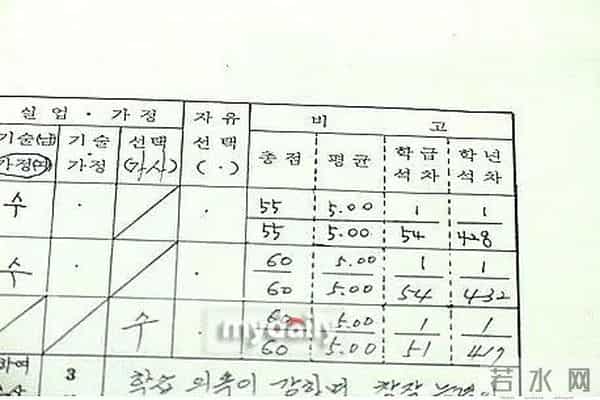 실업·가정 자유 비고
기술(남) 기술· 선택 선택 총점 평균 학급 학년
가정(여) 가정 (가사) (·) 석차 석차
수 · · 55 5.00 1 1
55 5.00 54 428
수 · · 60 5.00 1 1
60 5.00 54 432
수 · 60 5.00 1 1
60 5.00 51 417
mydaily
하여 3 학습 의욕이 강하며
若水网